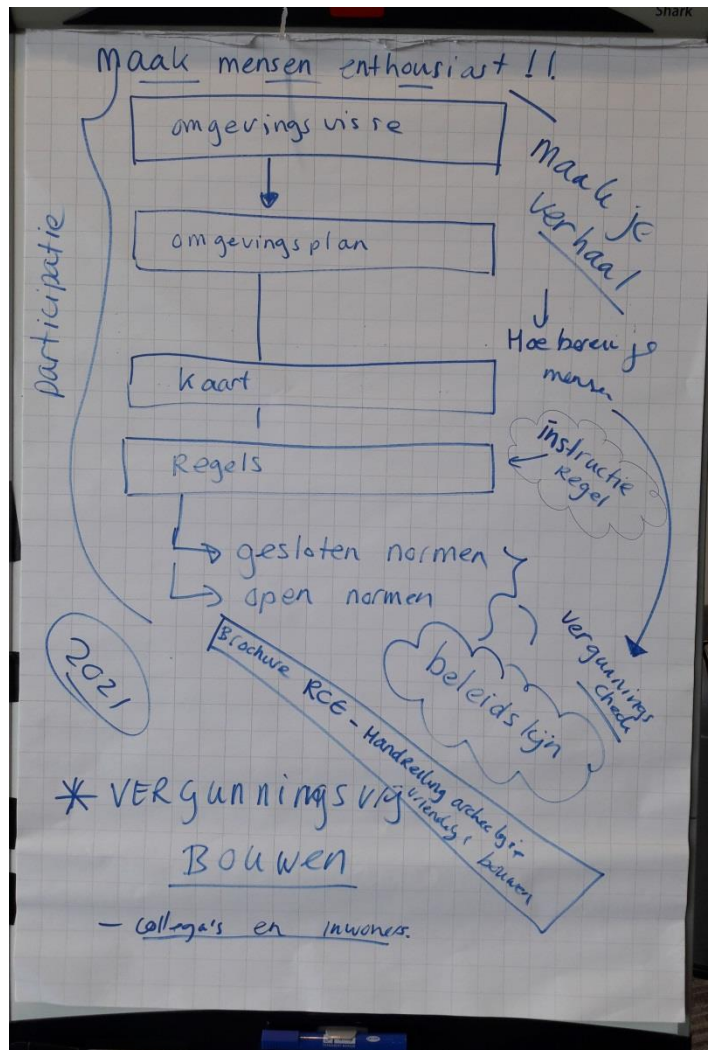 Shark
Maak mensen enthousiast !!
omgevingsvisie
omgevingsplan
Kaart
Regels
gesloten normen
open normen
participatie
Maak je
verhaal
Hoe boren je
mensen
instructie
Regel
vergunnings
check
beleidslijn
2021
Brochure RCE - Handreiking archeologie
vriendelijk bouwen
* VERgunningsvrij
Bouwen
- Collega's en inwoners.